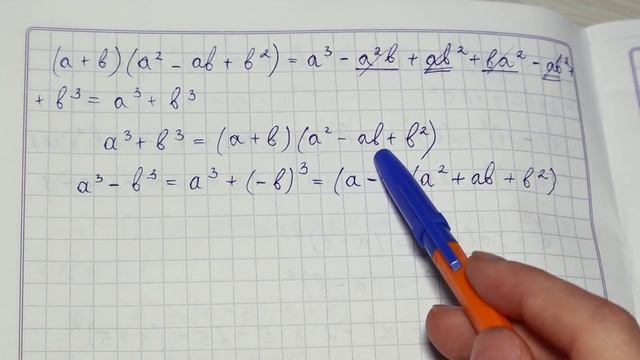 (a + b)(a² - ab + b²) = a³ - a²b + ab² + ba² - ab² +
+ b³ = a³ + b³
a³ + b³ = (a + b)(a² - ab + b²)
a³ - b³ = a³ + (-b)³ = (a - (a² + ab + b²)